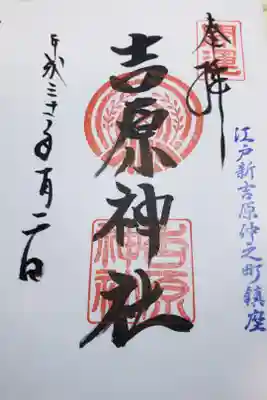 開運
奉拝
江戸新吉原仲之町鎮座
吉原神社
吉原神社
平成三十一年一月二日